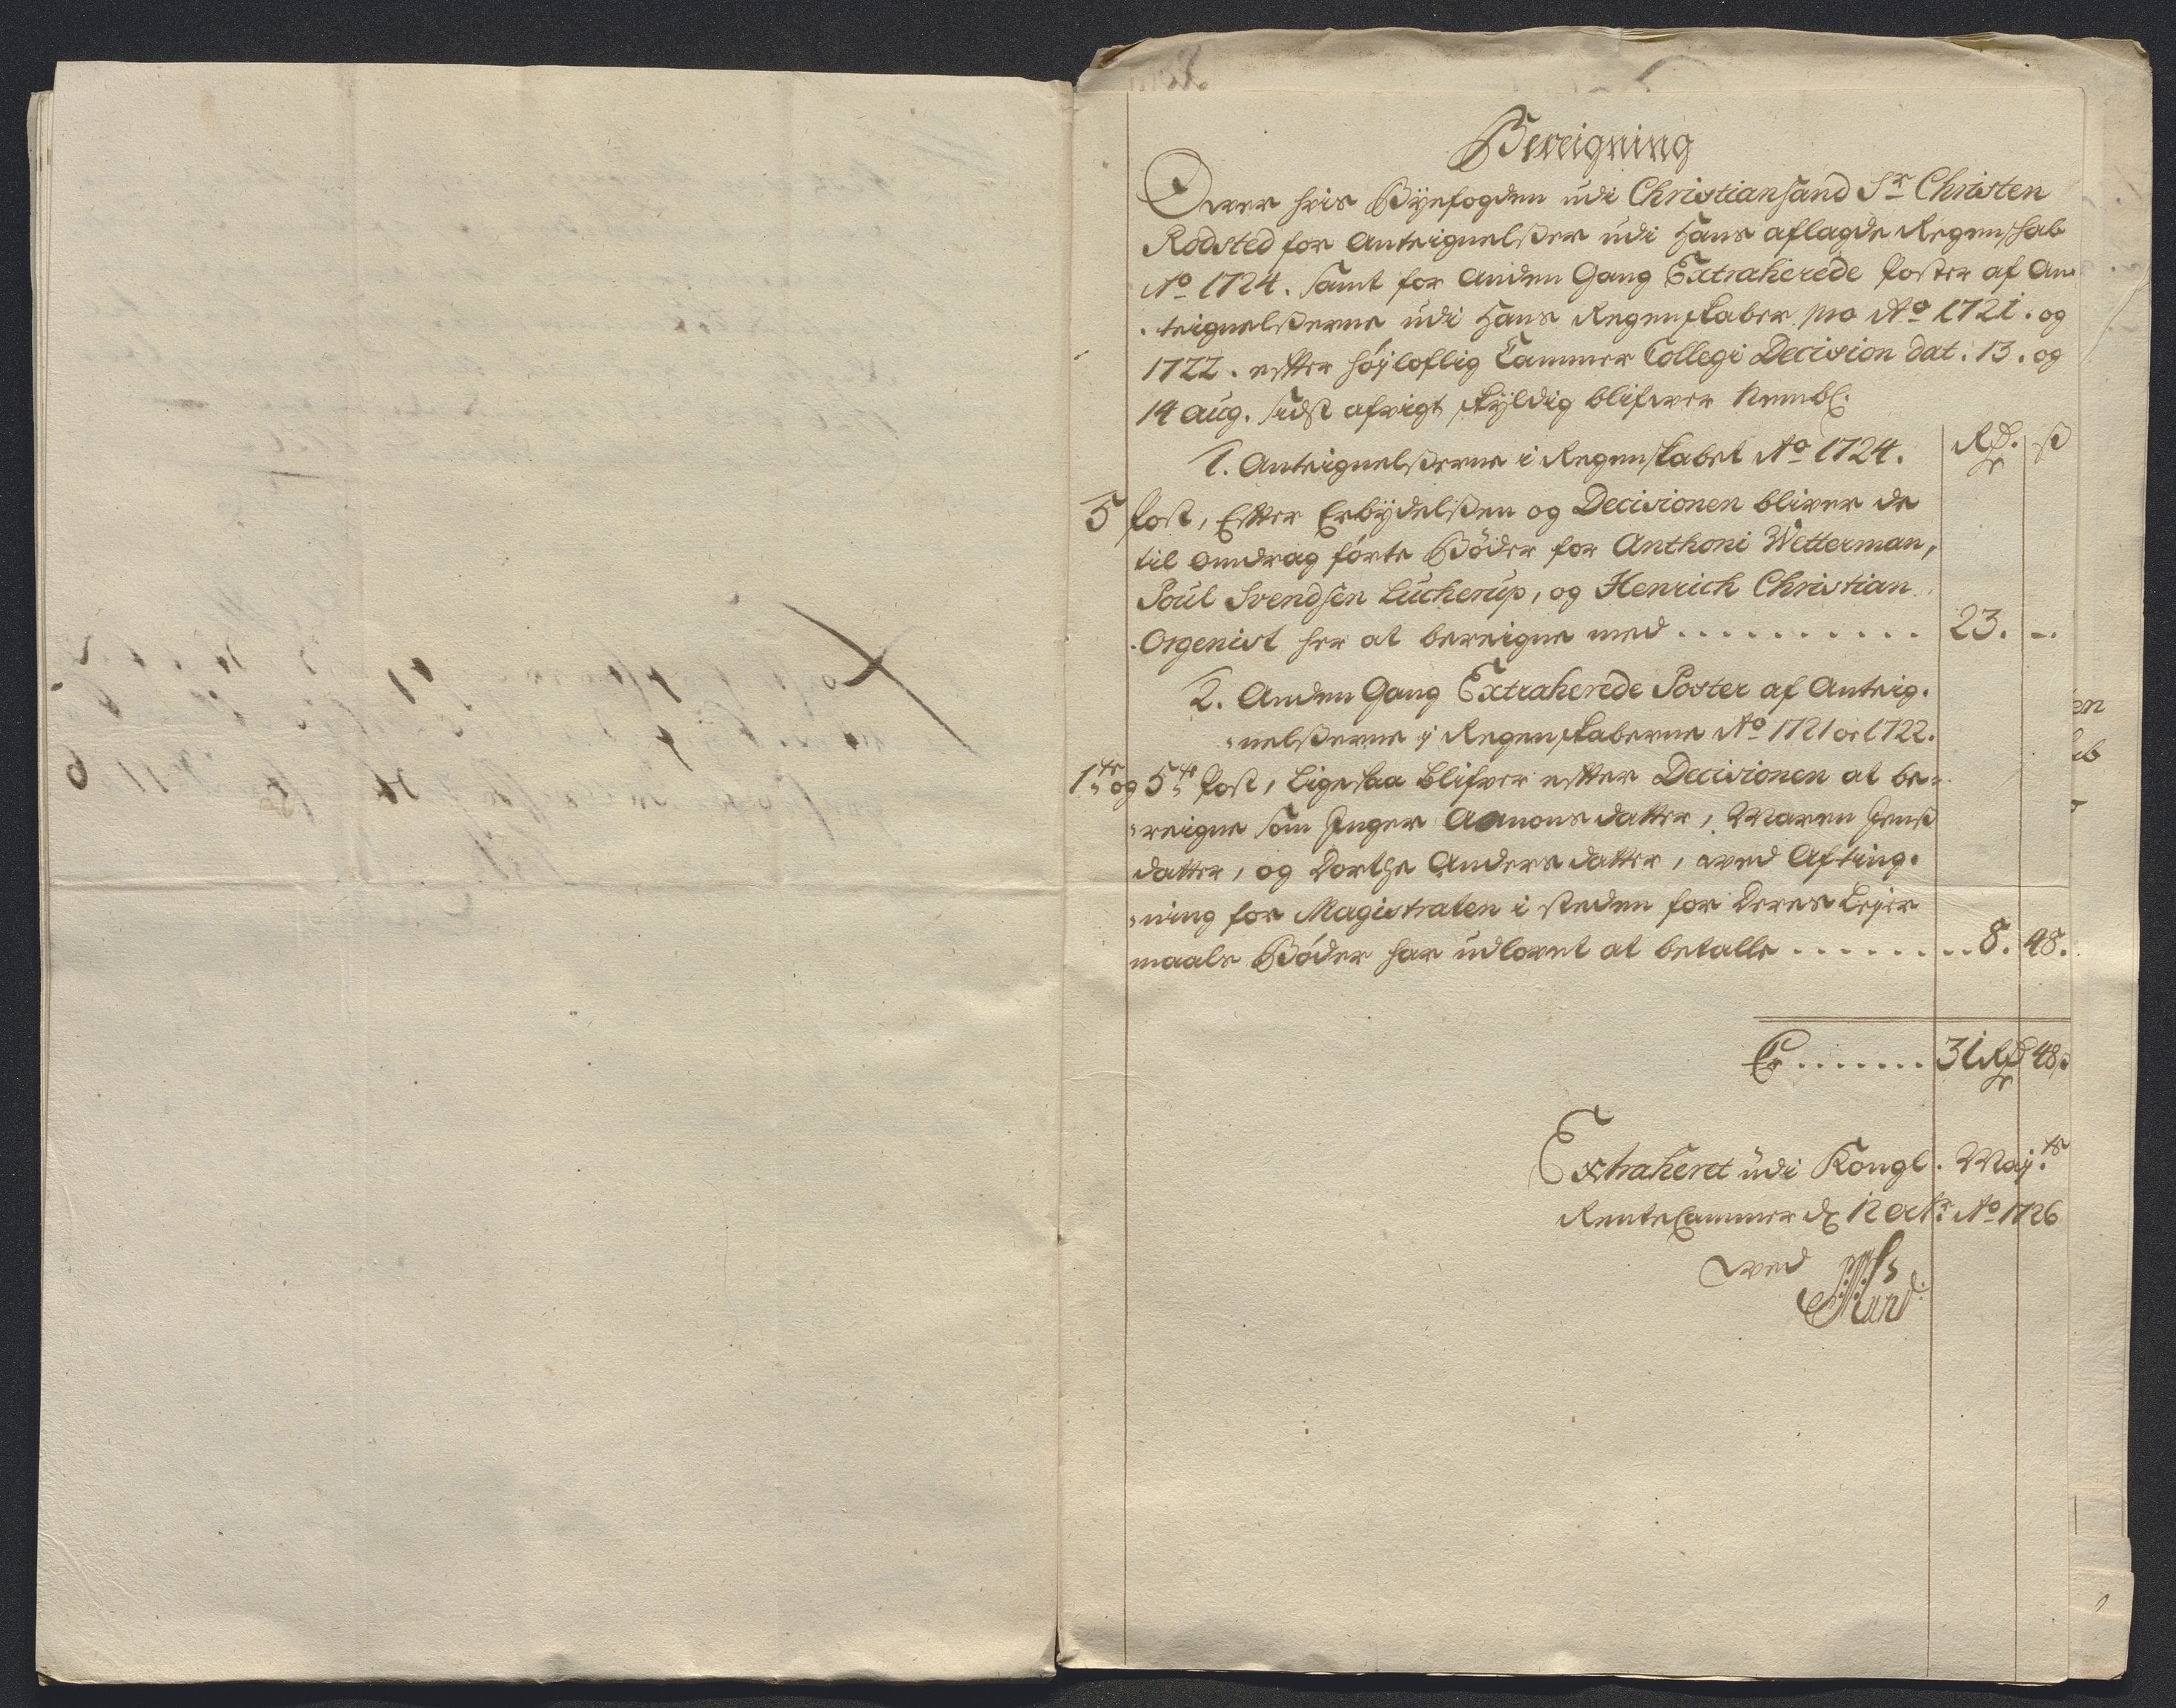 Bereigning
Over hvis Byefogden udi Christiansand Sr Christen
Rodsted for Anteignelsser udi Hans aflagde Regenskab
Ao 1724. samt for Anden Gang Extraherede Poster af An-
teignelsserne udi Hans Regenskaber pro Ao 1721. og
1722. effter høÿloflig Cammer Collegi Decision dat. 13. og
14 aug. sidst afvigt skÿldig blifwer Nembl.
Rd. ß
1. Anteignelsserne i Regenskabet Ao 1724.
5 Post, Effter Erbÿdelssen og Decisionen bliver de
til Omdrag førte Bøder for Anthoni Wetterman,
Poul Svendsen Lucherup, og Henrich Christian
Orgenist her at bereigne med .......... 23. -.
2. Anden Gang Extraherede Poster af Anteig-
nelsserne i Regenskaberne Ao 1721 og 1722.
1te og 5te Post, Ligesaa blifver effter Decisionen at be-
reigne som Inger Aamons datter, Maren Jens
datter, og Dorthe Anders datter, wed Afting-
ning for Magistraten i steden for deres Leyer
maals Bøder har udlovet at betalle ........ 8. 48.
Er ....... 31 Rd 48 ß
Extraheret udi Kongl. Maÿ:ts
RenteCammer d 12 octr: Ao 1726
wed